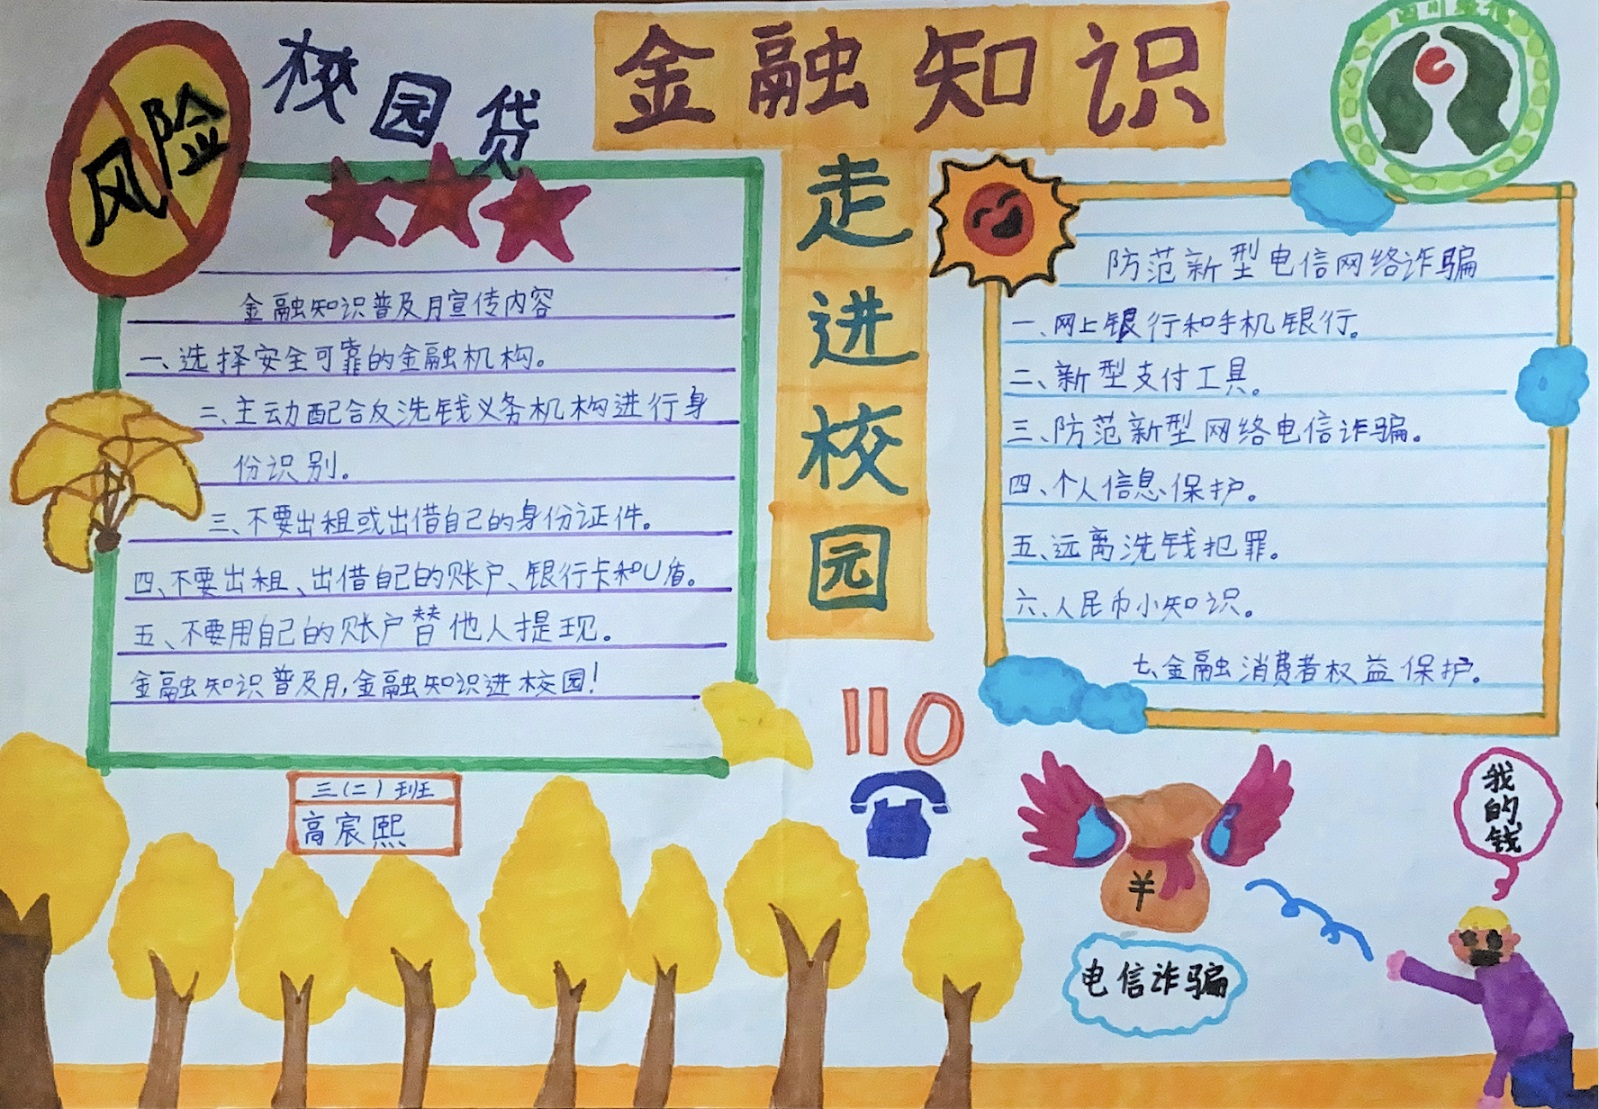 金融知识
走进校园
风险
校园贷
四川农信
金融知识普及月宣传内容
一、选择安全可靠的金融机构。
二、主动配合反洗钱义务机构进行身
份识别。
三、不要出租或出借自己的身份证件。
四、不要出租、出借自己的账户、银行卡和U盾。
五、不要用自己的账户替他人提现。
金融知识普及月,金融知识进校园!
防范新型电信网络诈骗
一、网上银行和手机银行。
二、新型支付工具。
三、防范新型网络电信诈骗。
四、个人信息保护。
五、远离洗钱犯罪。
六、人民币小知识。
七、金融消费者权益保护。
三(二)班
高宸熙
110
¥
电信诈骗
我的钱